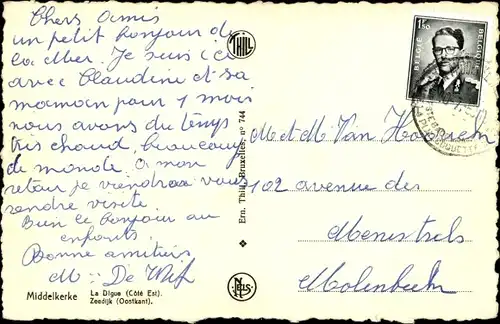 Chers amis
un petit bonjour de
la Mer. Je suis ici
avec Claudine et sa
maman pour 1 mois
nous avons du temps
très chaud, beaucoup
de monde. a mon
retour je viendrai vous
rendre visite.
Bien le bonjour au
enfants.
Bonne amitiés
M De
Middelkerke La Digue (Côté Est).
Zeedijk (Oostkant).
THILL
Ern. Thill, Bruxelles, n° 744
NELS
1F50
BELGIE BELGIQUE
M et M Van
102 avenue des
Menestrels
Molenbeek